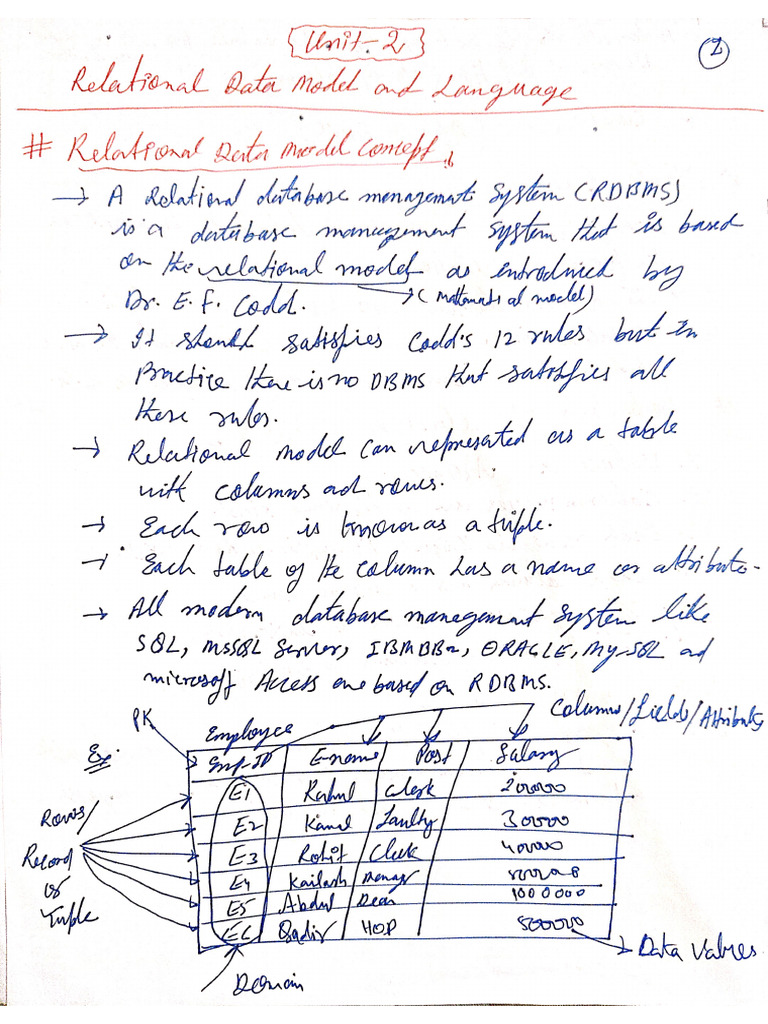 Unit-2
2
Relational Data Model and Language
# Relational Data Model Concept
→ A Relational database management System (RDBMS)
is a database management System that is based
on the relational model as introduced by
Dr. E. F. Codd. → (Mathematical model)
→ It should satisfies Codd's 12 rules but in
Practice there is no DBMS that satisfies all
these rules.
→ Relational model can represented as a table
with columns and rows.
→ Each row is known as a tuple.
→ Each table of the column has a name or attribute.
→ All modern database management system like
SQL, MSSQL Server, IBM DB2, ORACLE, My-SQL and
microsoft Access are based on RDBMS.
PK
Employee
Columns/Fields/Attributes
Ex:
Emp-ID E-name Post Salary
E1 Rahul Clerk
E2 Kamal 30000
E3 Rohit Clerk 40000
E4 Kailash
E5 Abdul Dean 1000000
E6 Qadir HOD
Rows/
Record
or
Tuple
Data Values
Domain